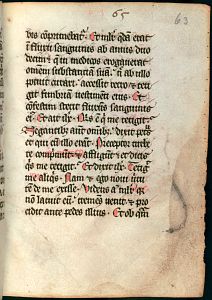 65
63
bis comprimebat. Et mulier quedam erat
in fluxu sanguinis ab annis duo
decim: que in medicos erogaverat
omnem substantiam suam: nec ab ullo
potuit curari: accessit retro & teti
git fimbriam vestimenti eius. Et
confestim stetit fluxus sanguinis
eius. Et ait ihesus. Quis est qui me tetigit.
Negantibus autem omnibus: dixit petrus
et qui cum illo erant. Preceptor turbe
te comprimunt & affligunt & dicis
quis me tetigit. Et dixit ihesus. Tetigit
me aliquis. Nam & ego novi virtu
tem de me exisse. Videns autem mulier quia
non latuit eum: tremens venit & pro
cidit ante pedes illius. Et ob quam